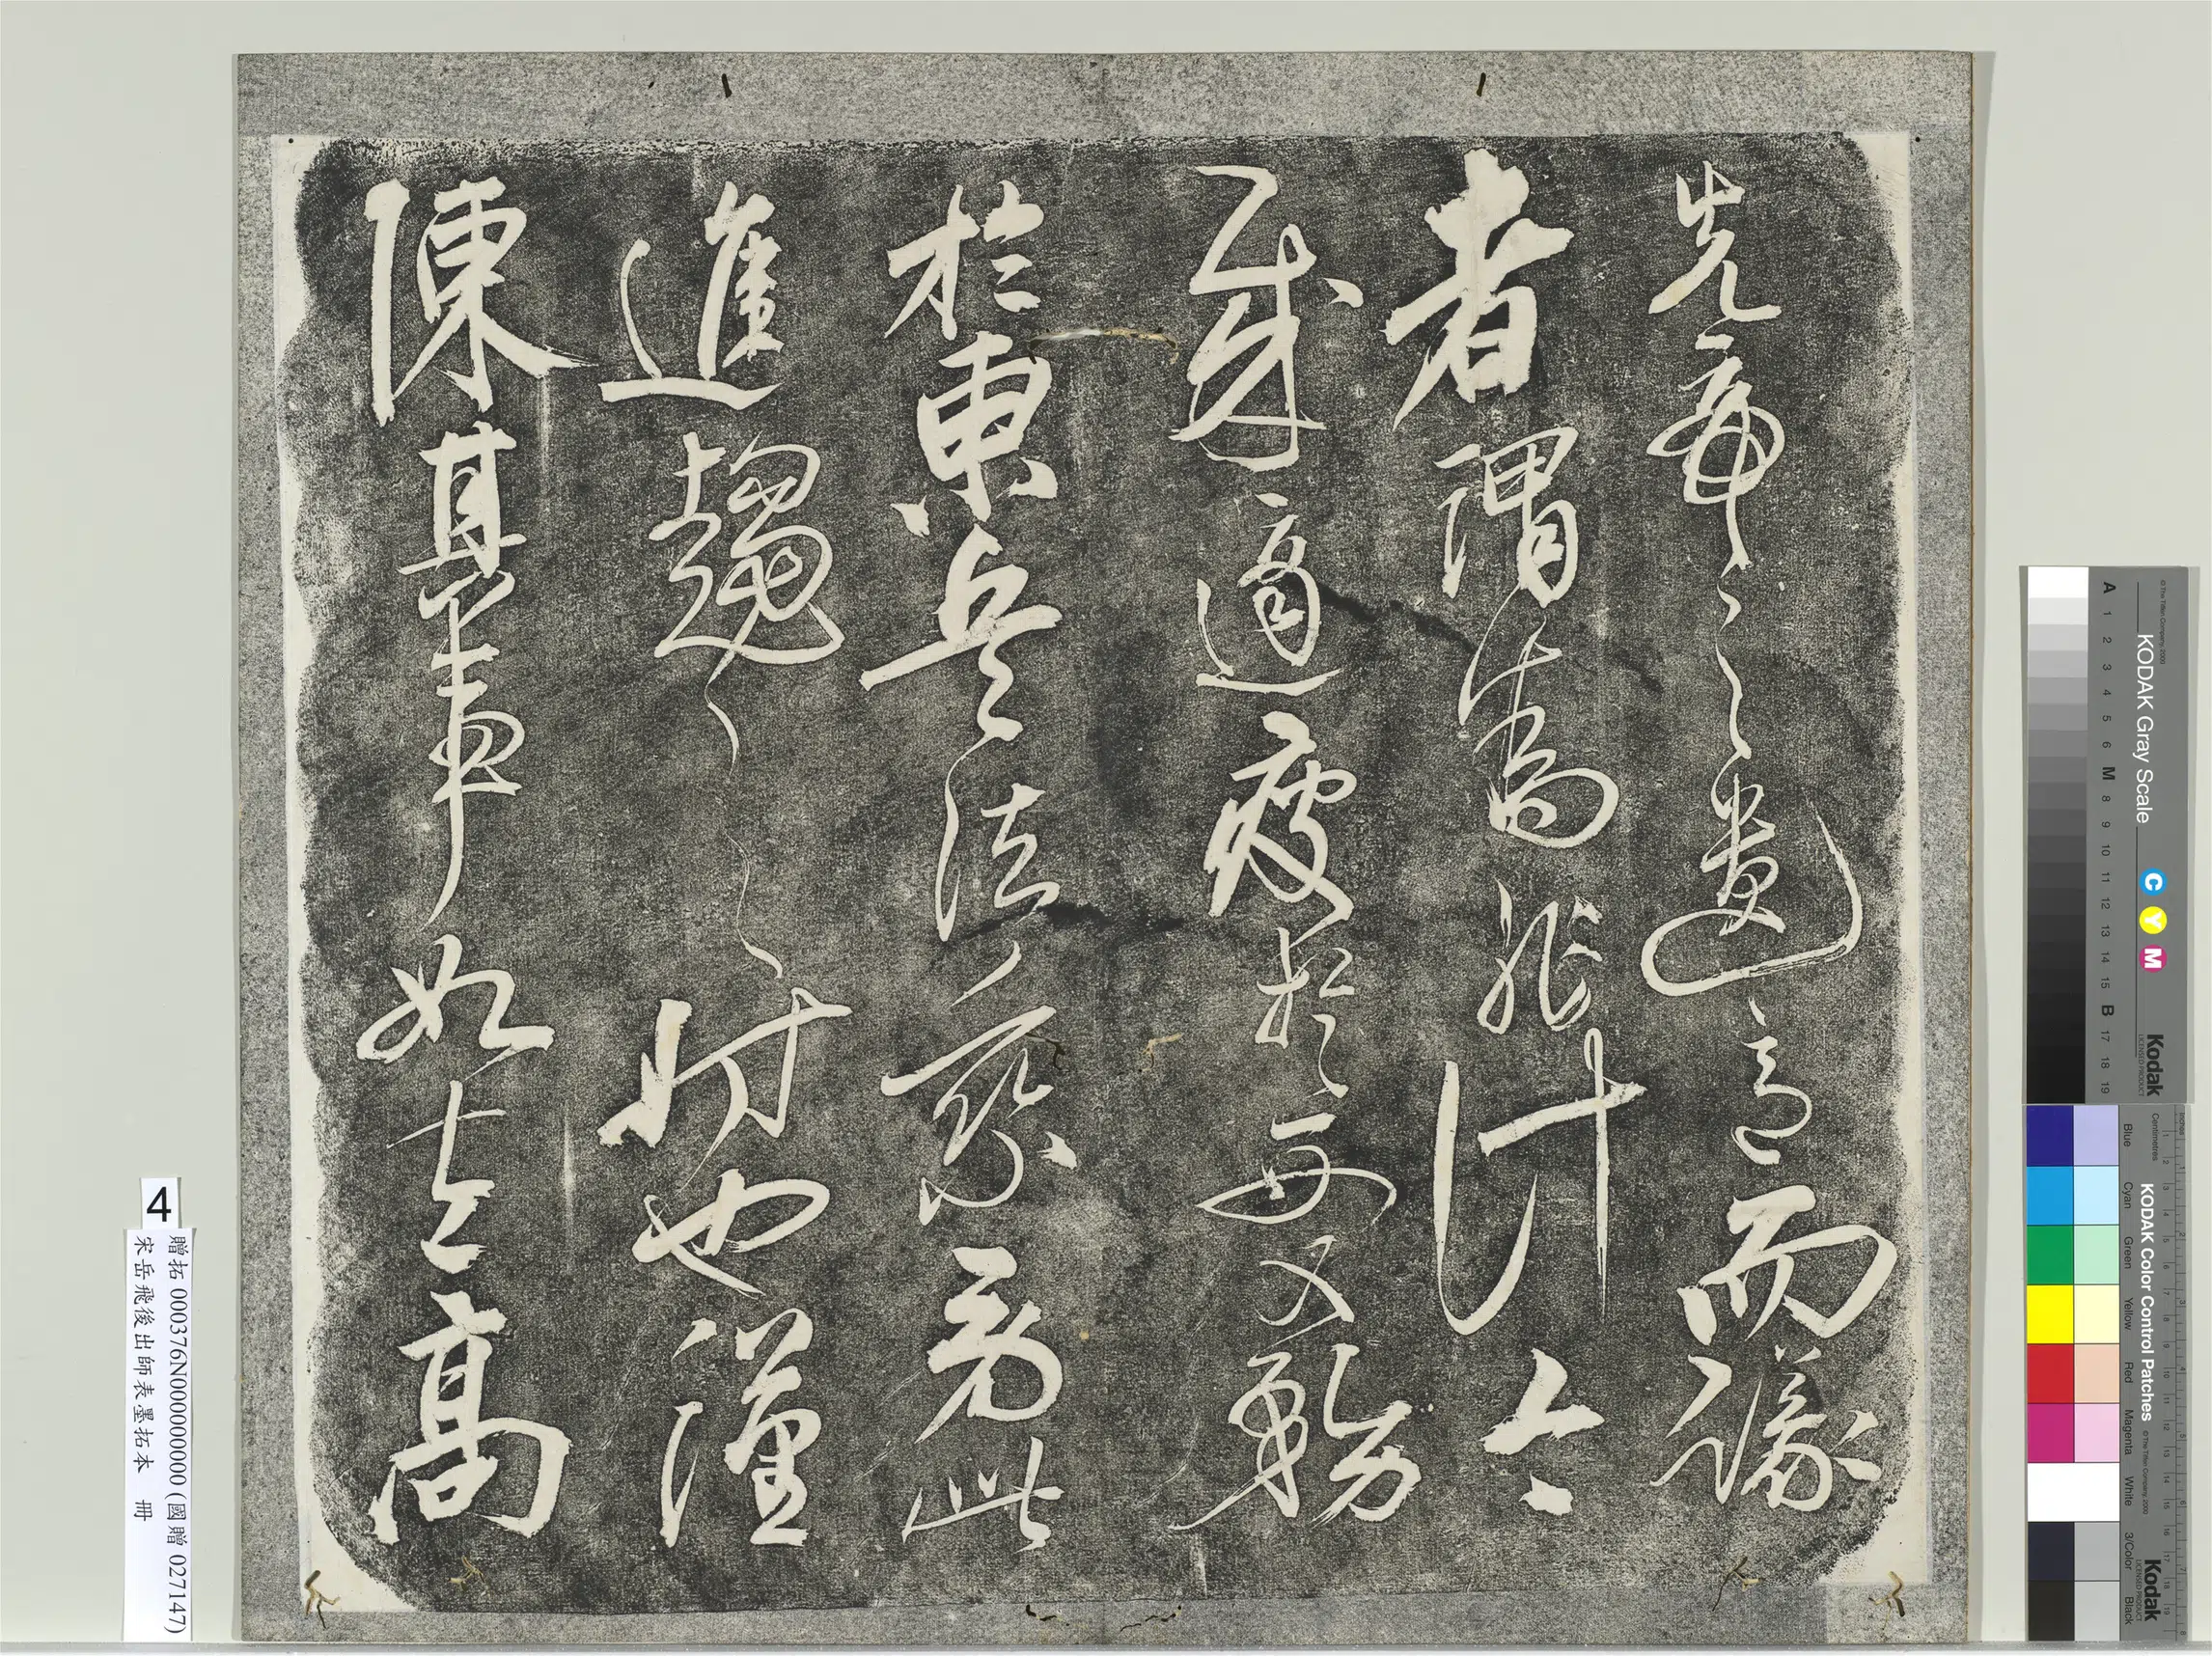 先帝之遺意而議
者謂為非計今
賊適疲於西又務
於東兵法乘勞此
進趨之時也謹
陳其事如左高
4
贈拓 000376N000000000 (國贈 027147)
宋岳飛後出師表墨拓本 冊
KODAK Gray Scale
C Y M
Kodak
LICENSED PRODUCT
© The Tiffen Company, 2000
A 1 2 3 4 5 6 M 8 9 10 11 12 13 14 15 B 17 18 19
KODAK Color Control Patches
© The Tiffen Company, 2000
Kodak
LICENSED PRODUCT
Blue Cyan Green Yellow Red Magenta White 3/Color Black
Centimetres
Inches